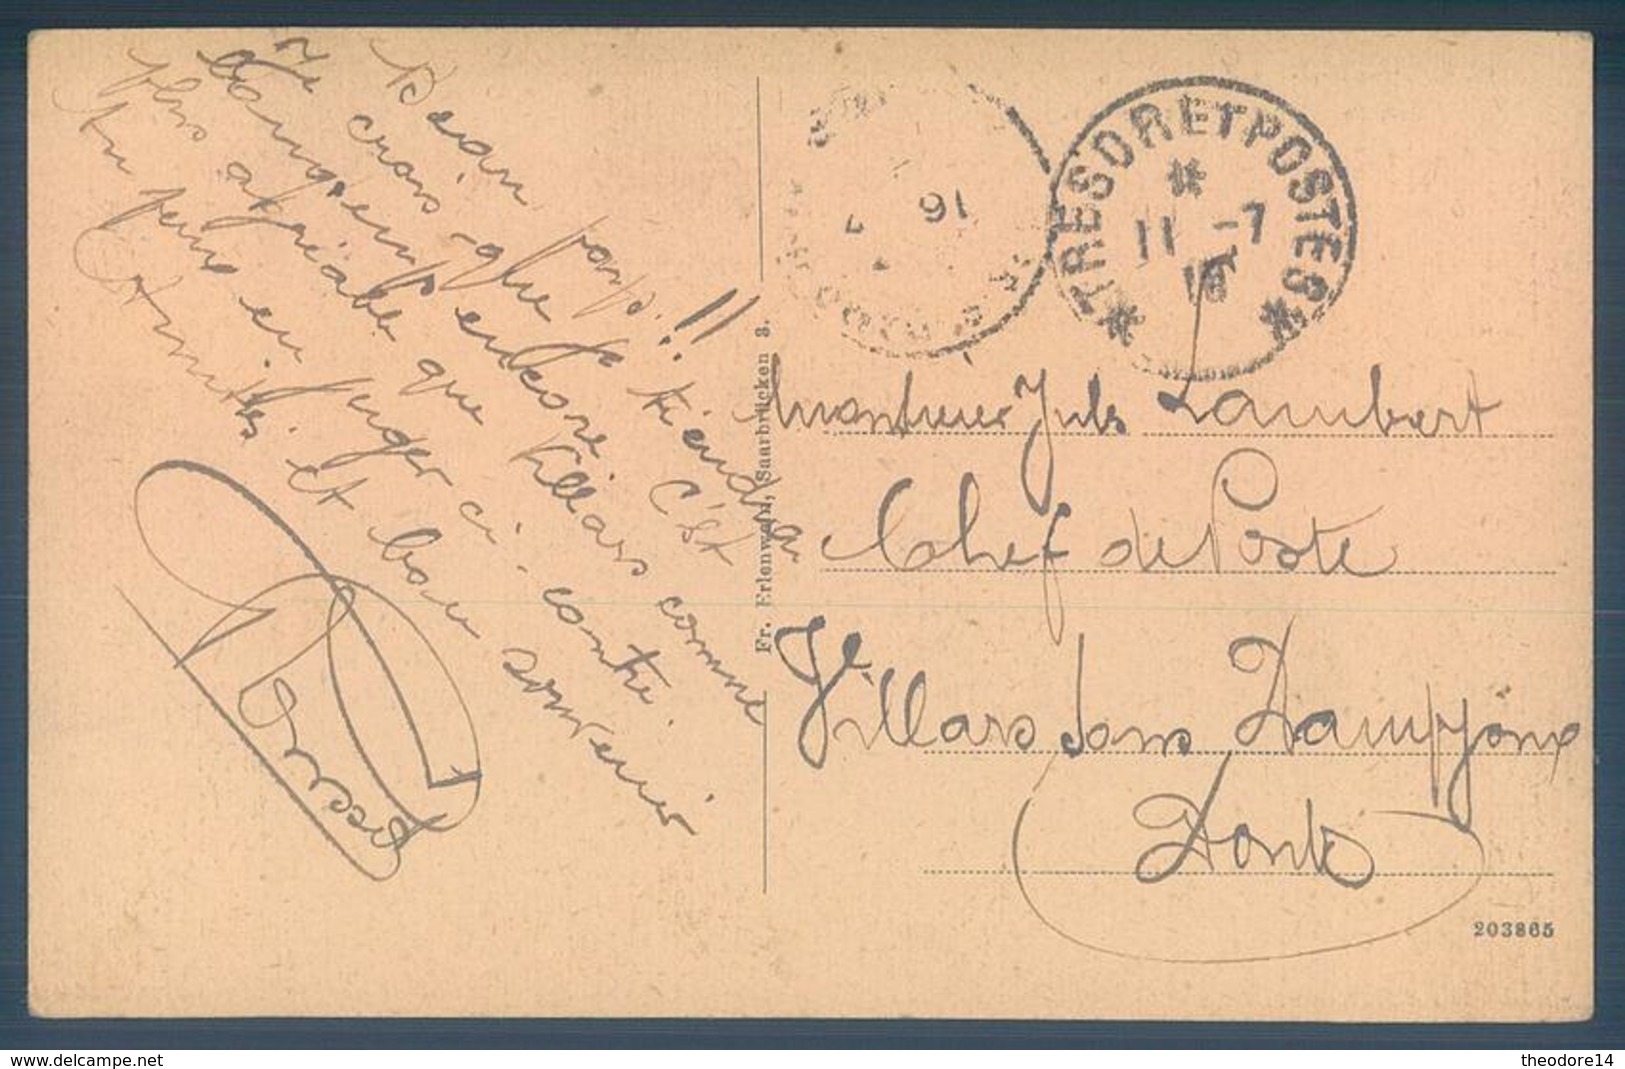 Beau temps !!
Je crois que je tiendrai
longtemps encore C'est
plus agréable que Villars comme
tu peux en juger ci-contre.
Amitiés et bon souvenir
TRESOR ET POSTES
11 -7
16
Monsieur Jules Lambert
Chef de Poste
Villars sous Dampjoux
Doubs
Fr. Erlenwein, Saarbrücken 3.
203865
delcampe.net
theodore14